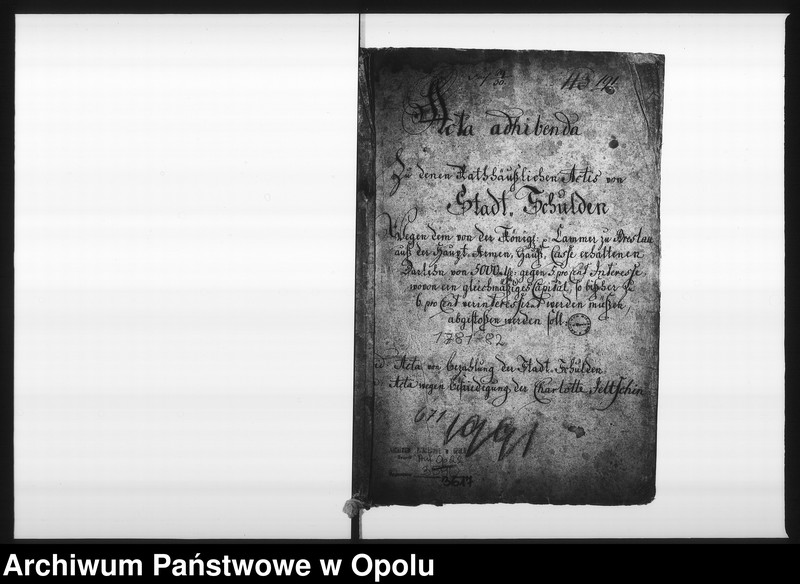 Acta adhibenda
Zu denen Rathhäußlichen Actis von
Stadt. Schulden
Wegen dem von der Königl: Cammer zu Breslau
auß der Haupt. Armen, Hauß, Casse erhaltenen
Darlehn von 5000 gegen 5. pro Cent Interesse,
wovon ein gleichmäßiges Capital, so bißher zu
6. pro Cent verinteressirt werden müßen,
abgestoßen werden soll.
1781-82
Acta von bezahlung der Stadt. Schulden.
Acta wegen befriedigung der Charlotte Jeltschin
671
3617
Archiwum Państwowe w Opolu